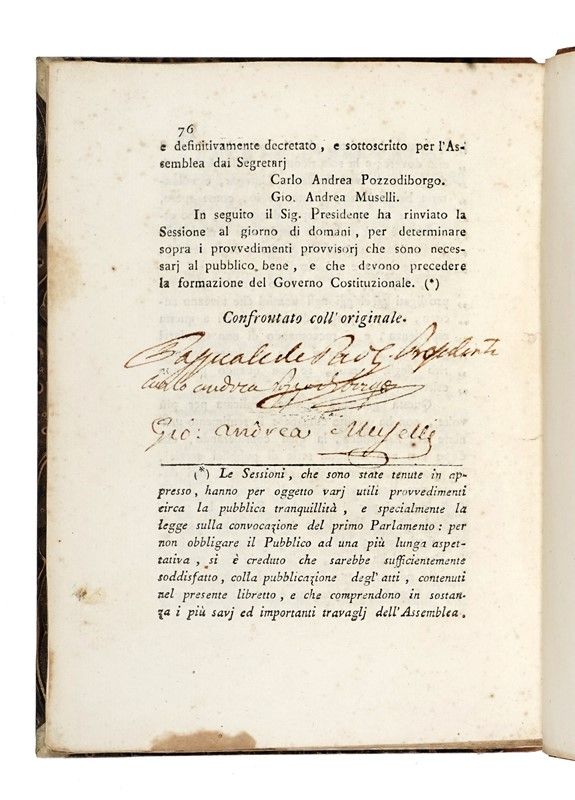 76
e definitivamente decretato , e sottoscritto per l'As-
semblea dai Segretarj
Carlo Andrea Pozzodiborgo.
Gio. Andrea Muselli.
In seguito il Sig. Presidente ha rinviato la
Sessione al giorno di domani , per determinare
sopra i provvedimenti provvisorj che sono neces-
sarj al pubblico bene , e che devono precedere
la formazione del Governo Costituzionale. (*)
Confrontato coll'originale.
Pasquale de Paoli Presidente
Carlo andrea Pozzodiborgo
Gio: andrea Muselli
(*) Le Sessioni , che sono state tenute in ap-
presso, hanno per oggetto varj utili provvedimenti
circa la pubblica tranquillità , e specialmente la
legge sulla convocazione del primo Parlamento : per
non obbligare il Pubblico ad una più lunga aspet-
tativa , si è creduto che sarebbe sufficientemente
soddisfatto , colla pubblicazione degl'atti , contenuti
nel presente libretto , e che comprendono in sostan-
za i più savj ed importanti travaglj dell'Assemblea .